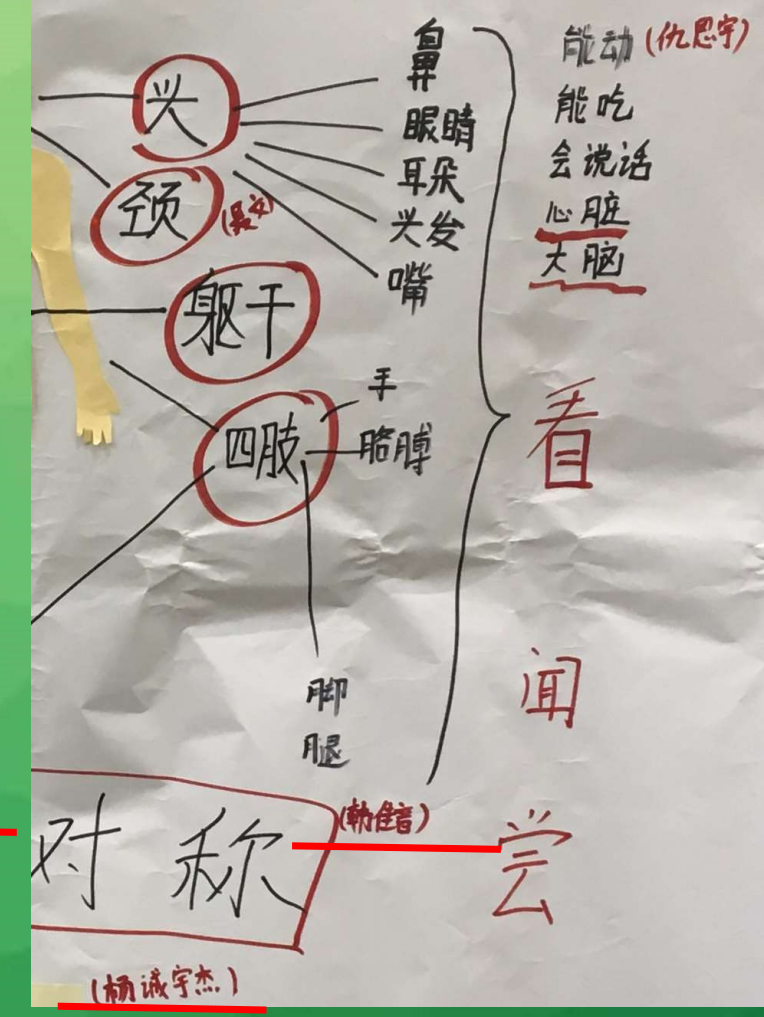 头
颈
躯干
四肢
鼻
眼睛
耳朵
头发
嘴
手
胳膊
脚
腿
能动(仇思宇)
能吃
会说话
心脏
大脑
看
闻
尝
对称
(杨诚宇杰)